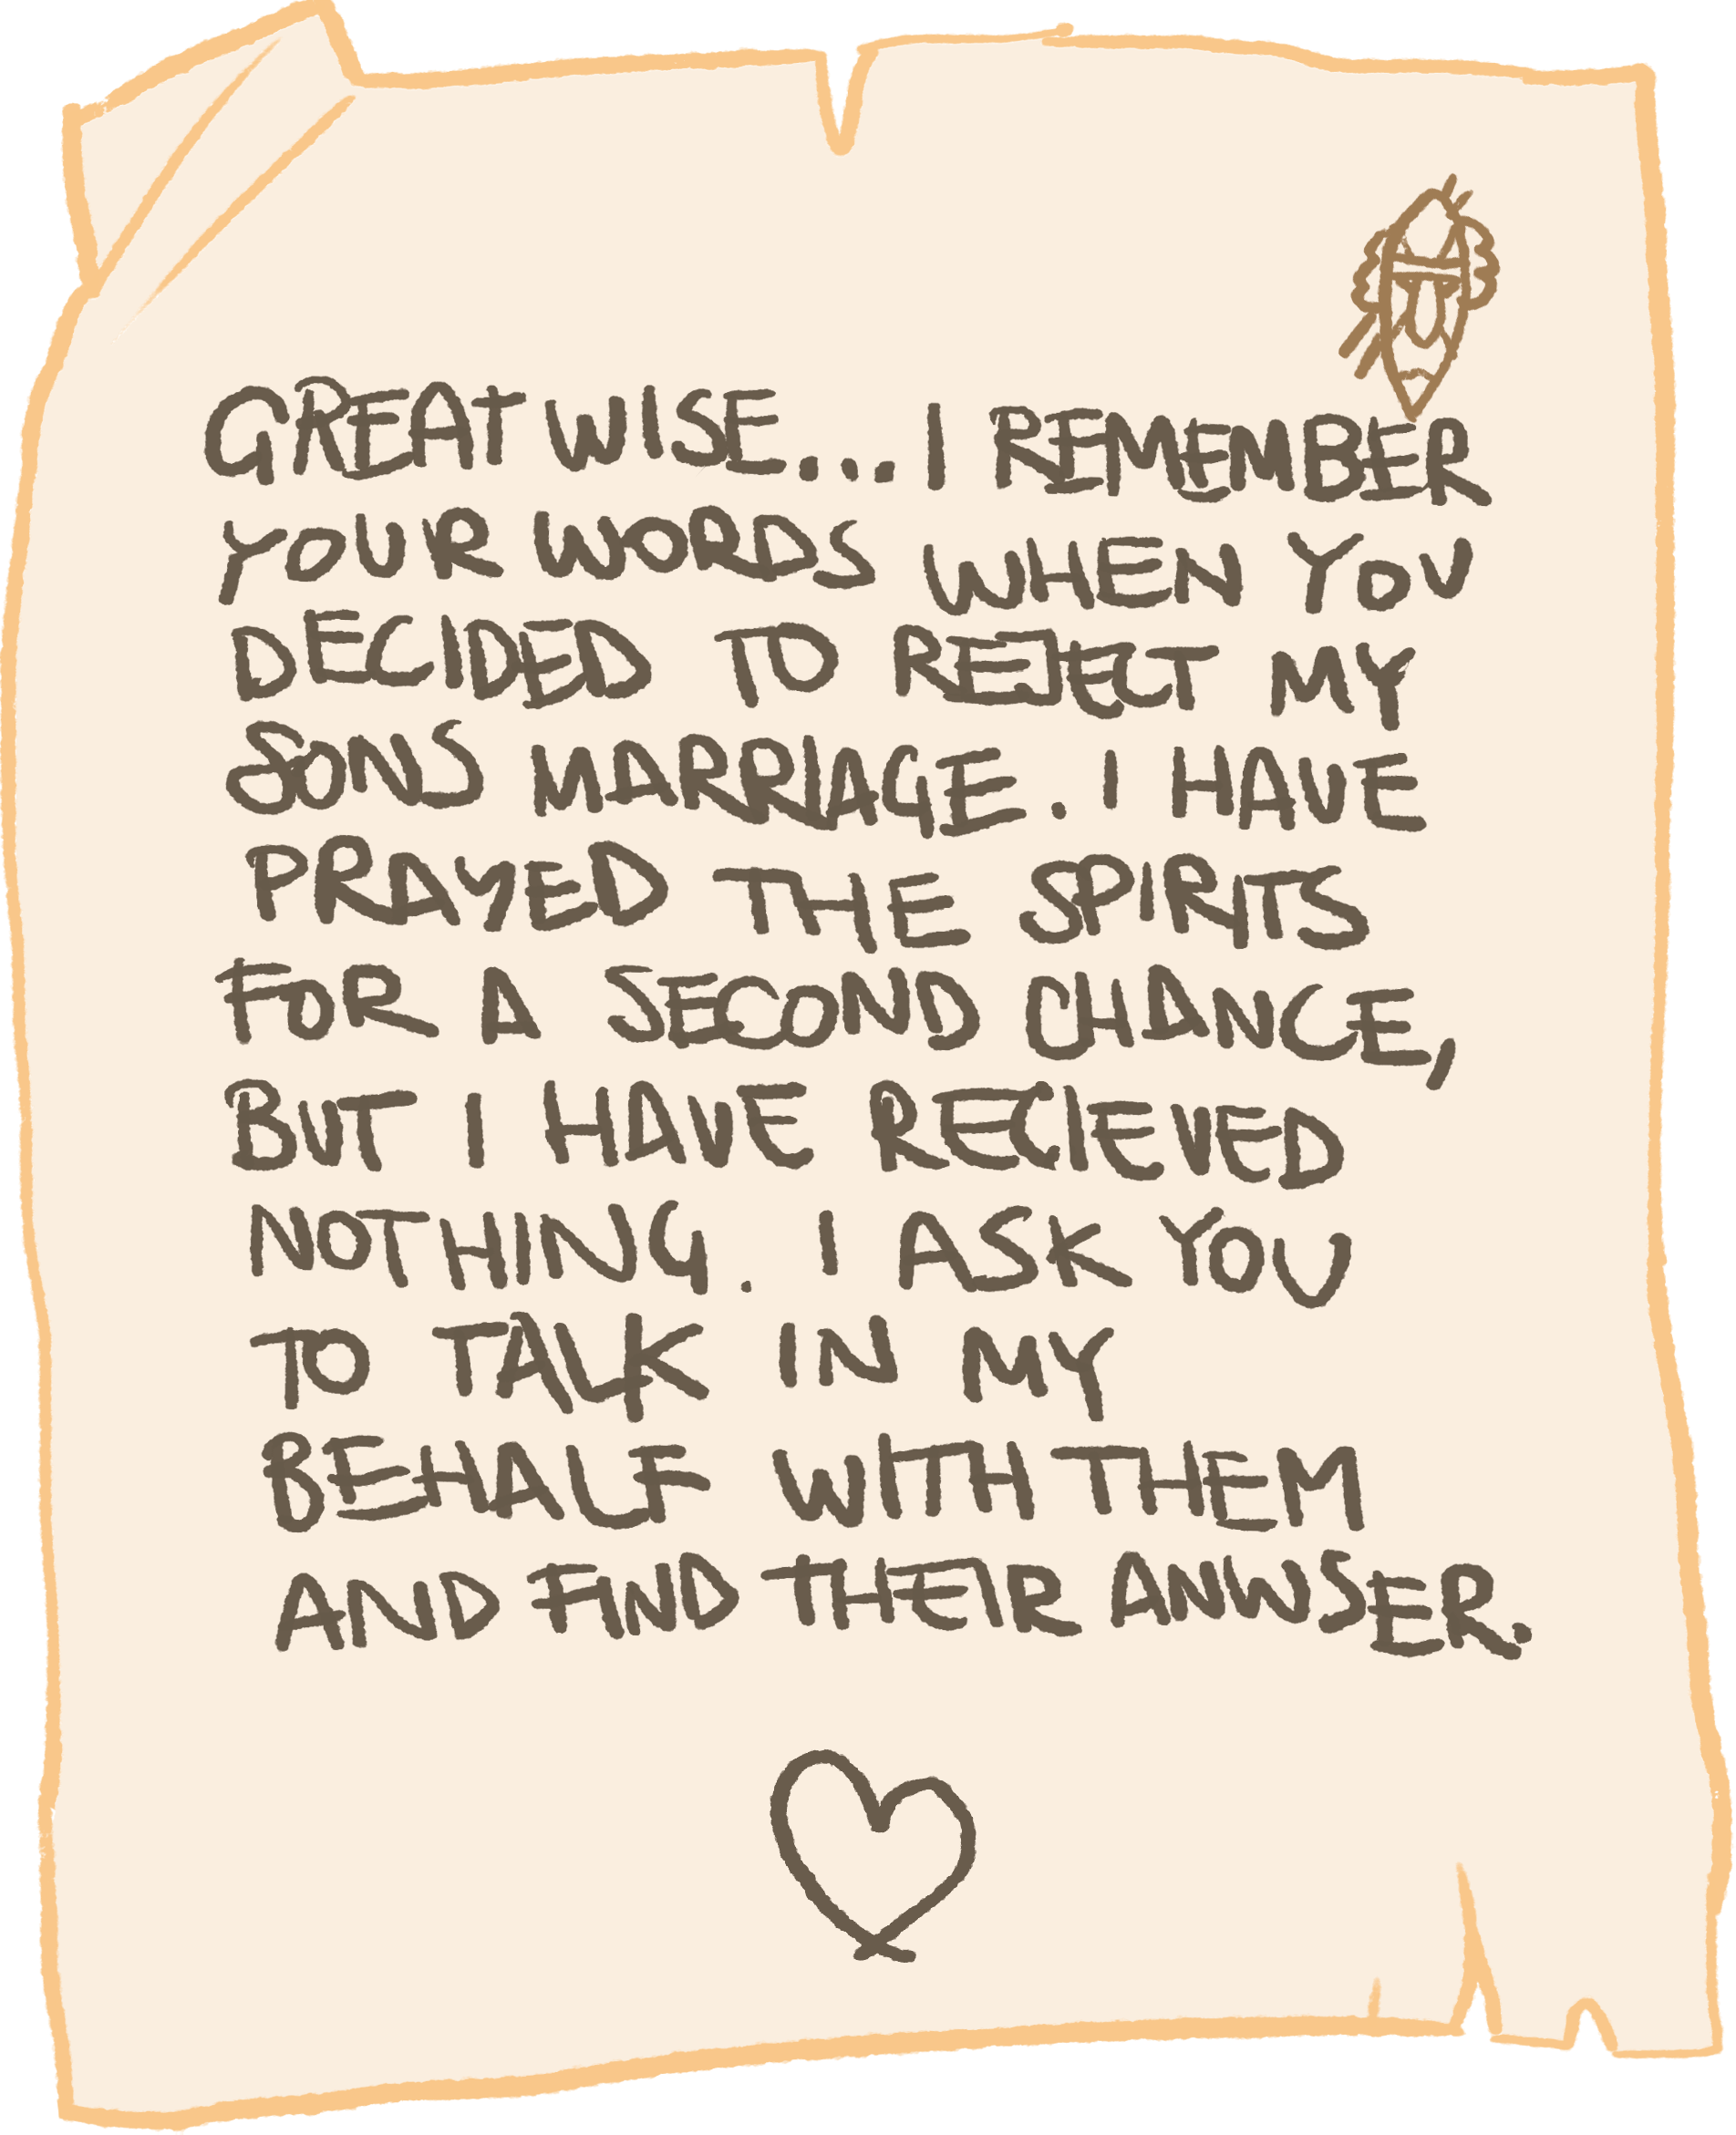 GREAT WISE... I REMEMBER
YOUR WORDS WHEN YOU
DECIDED TO REJECT MY
SONS MARRIAGE. I HAVE
PRAYED THE SPIRITS
FOR A SECOND CHANCE,
BUT I HAVE RECIEVED
NOTHING. I ASK YOU
TO TALK IN MY
BEHALF WITH THEM
AND FIND THEIR ANWSER.